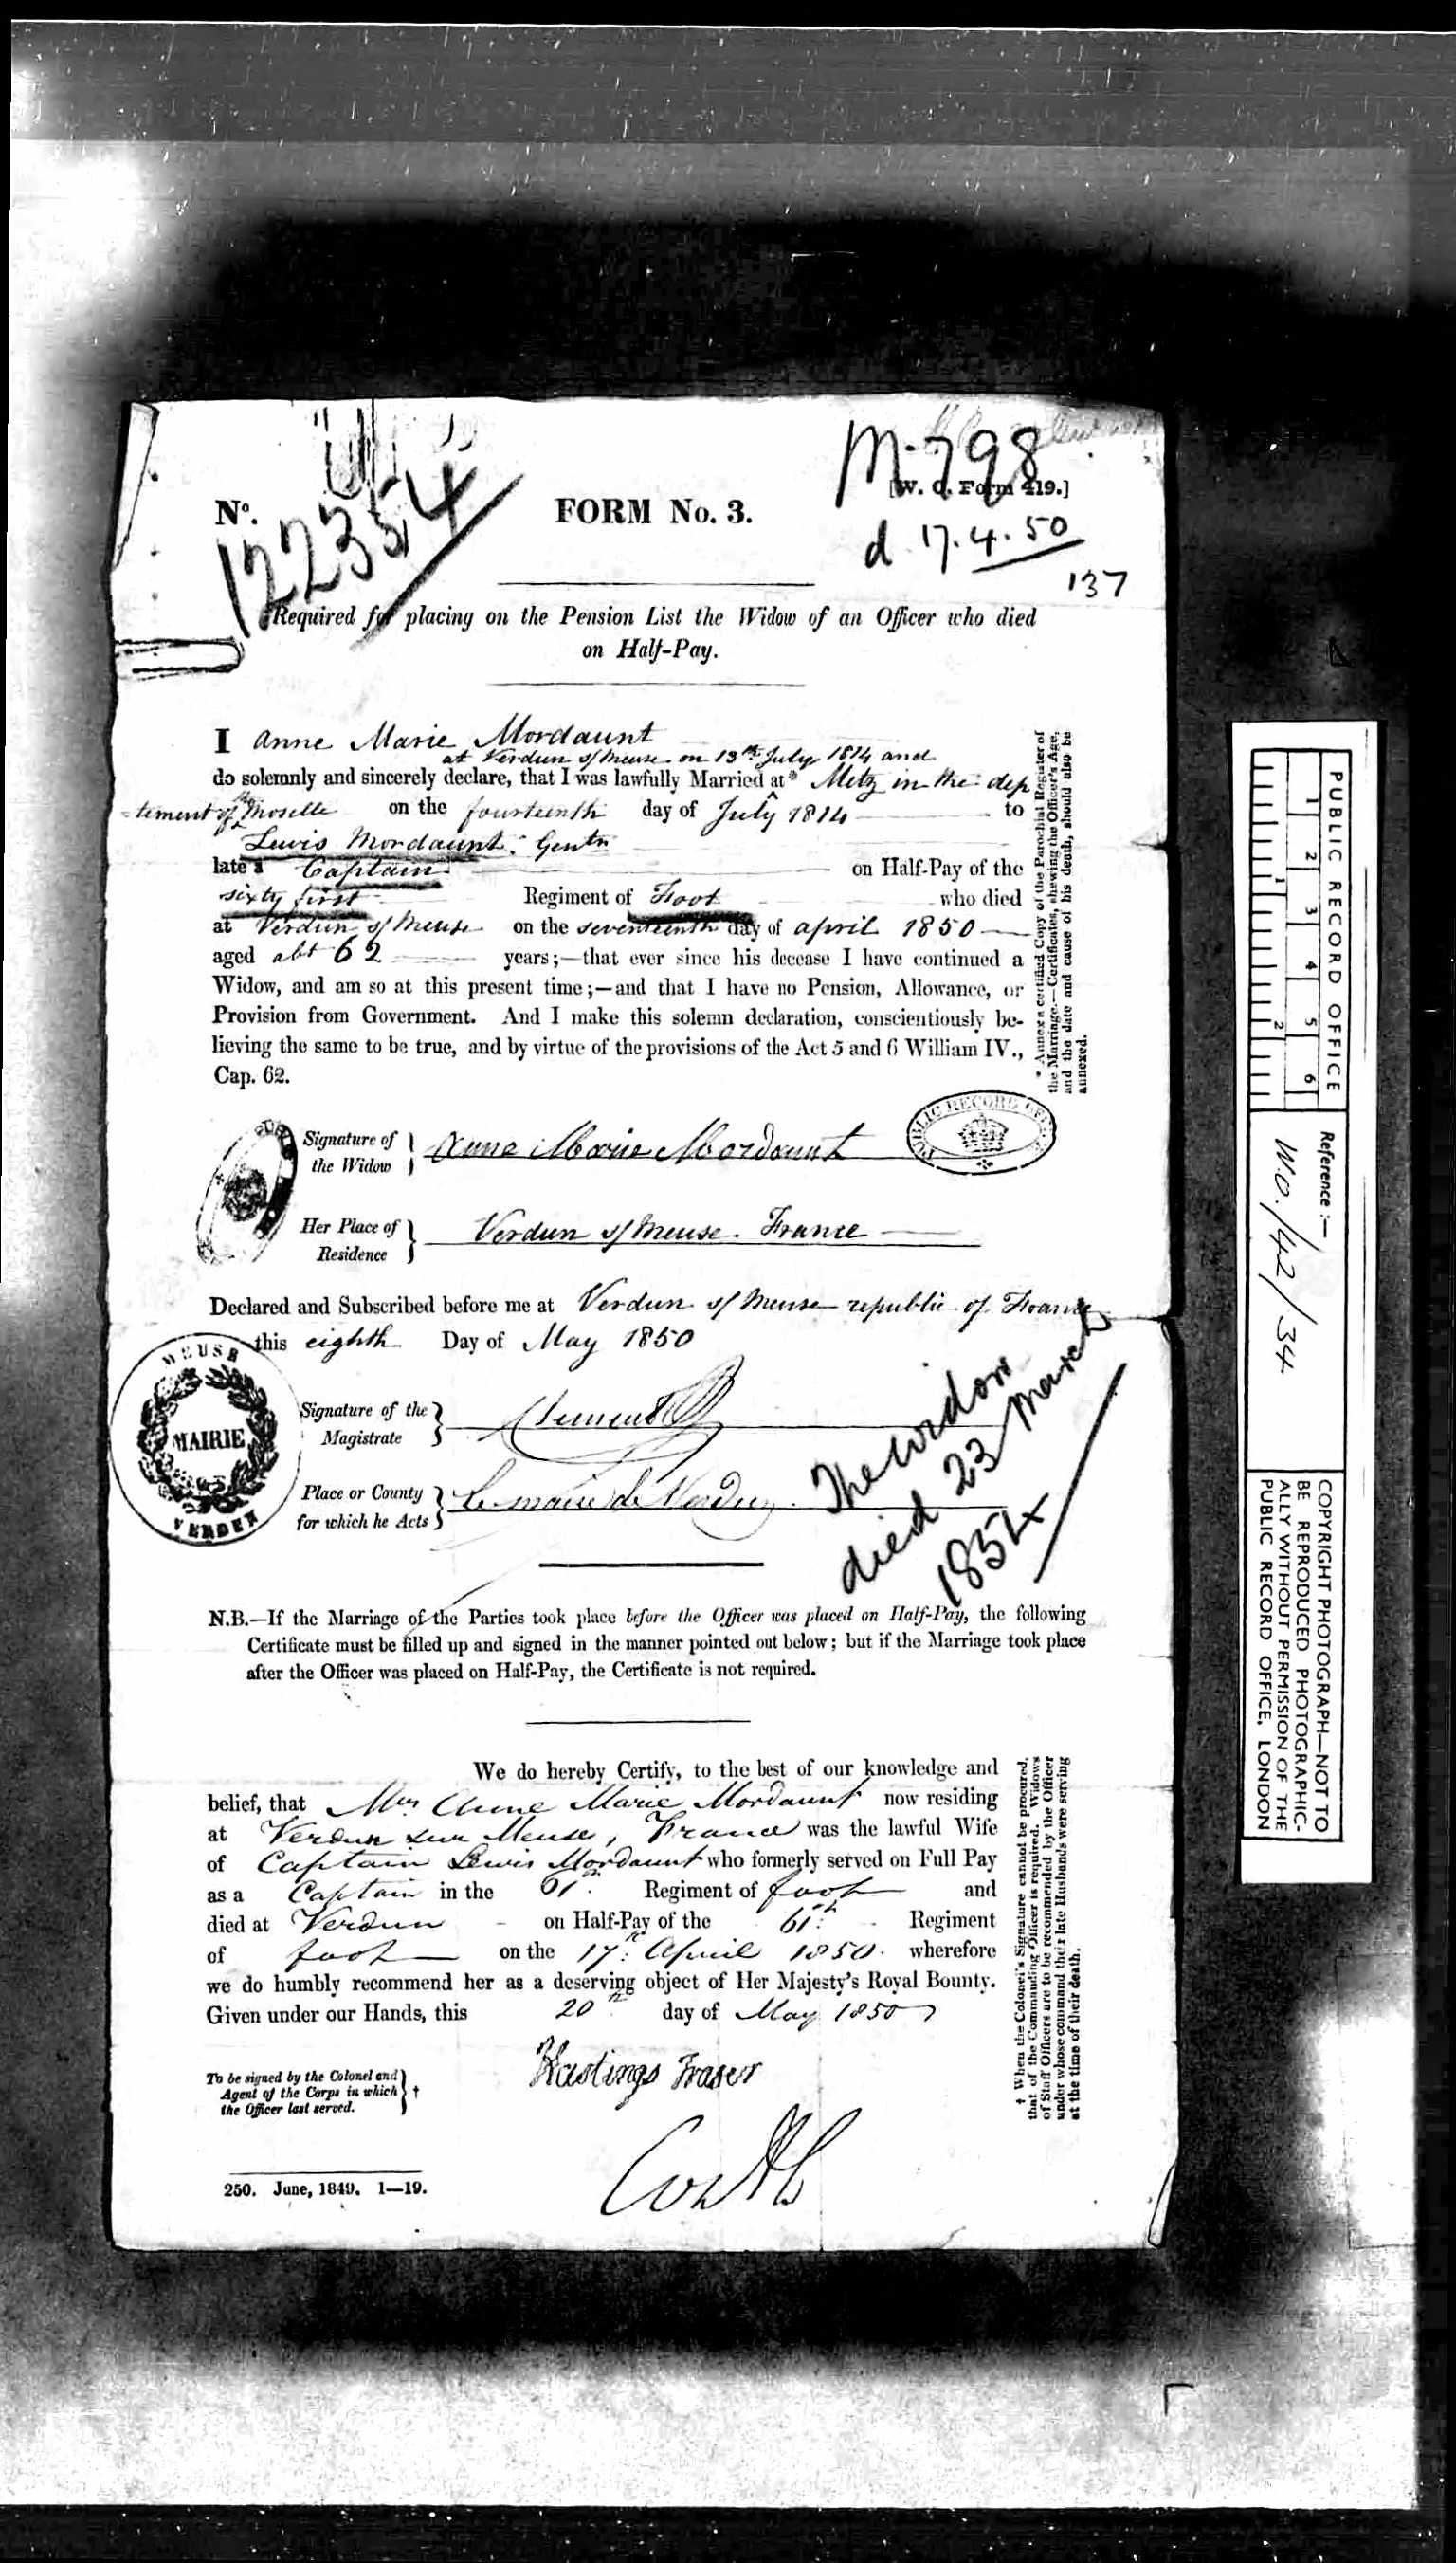 M-798
[W. O. Form 419.]
No.
12354
FORM No. 3.
d. 17.4.50
137
Required for placing on the Pension List the Widow of an Officer who died
on Half-Pay.
I Anne Marie Mordaunt
at Verdun s/meuse on 13th July 1814 and
do solemnly and sincerely declare, that I was lawfully Married at* Metz in the dep
-tement of the Moselle on the fourteenth day of July 1814 to
Lewis Mordaunt. Gentn
late a Captain on Half-Pay of the
sixty first Regiment of Foot who died
at Verdun s/Meuse on the seventeenth day of april 1850
aged abt 62 years;—that ever since his decease I have continued a
Widow, and am so at this present time;—and that I have no Pension, Allowance, or
Provision from Government. And I make this solemn declaration, conscientiously be-
lieving the same to be true, and by virtue of the provisions of the Act 5 and 6 William IV.,
Cap. 62.
* Annex a certified Copy of the Parochial Register of
the Marriage.—Certificates, shewing the Officer's Age,
and the date and cause of his death, should also be
annexed.
Signature of
the Widow
Anne Marie Mordaunt
PUBLIC RECORD OFFICE
Her Place of
Residence
Verdun s/meuse. France
Declared and Subscribed before me at Verdun s/Meuse republic of France
this eighth Day of May 1850
MEUSE
MAIRIE
VERDUN
Signature of the
Magistrate
Clement
Place or County
for which he Acts
Le maire de Verdun
The widow
died 23 March
1854
N.B.—If the Marriage of the Parties took place before the Officer was placed on Half-Pay, the following
Certificate must be filled up and signed in the manner pointed out below; but if the Marriage took place
after the Officer was placed on Half-Pay, the Certificate is not required.
We do hereby Certify, to the best of our knowledge and
belief, that Mrs Anne Marie Mordaunt now residing
at Verdun sur Meuse, France was the lawful Wife
of Captain Lewis Mordaunt who formerly served on Full Pay
as a Captain in the 61st Regiment of foot and
died at Verdun on Half-Pay of the 61st Regiment
of foot on the 17th April 1850. wherefore
we do humbly recommend her as a deserving object of Her Majesty's Royal Bounty.
Given under our Hands, this 20th day of May 1850
† When the Colonel's Signature cannot be procured,
that of the Commanding Officer is required. Widows
of Staff Officers are to be recommended by the Officer
under whose command their late Husbands were serving
at the time of their death.
To be signed by the Colonel and
Agent of the Corps in which
the Officer last served.
†
Hastings Fraser
250. June, 1849. 1—19.
PUBLIC RECORD OFFICE
1 2 3 4 5 6
1 2
Reference :—
W.O./42/34
COPYRIGHT PHOTOGRAPH—NOT TO
BE REPRODUCED PHOTOGRAPHIC-
ALLY WITHOUT PERMISSION OF THE
PUBLIC RECORD OFFICE, LONDON